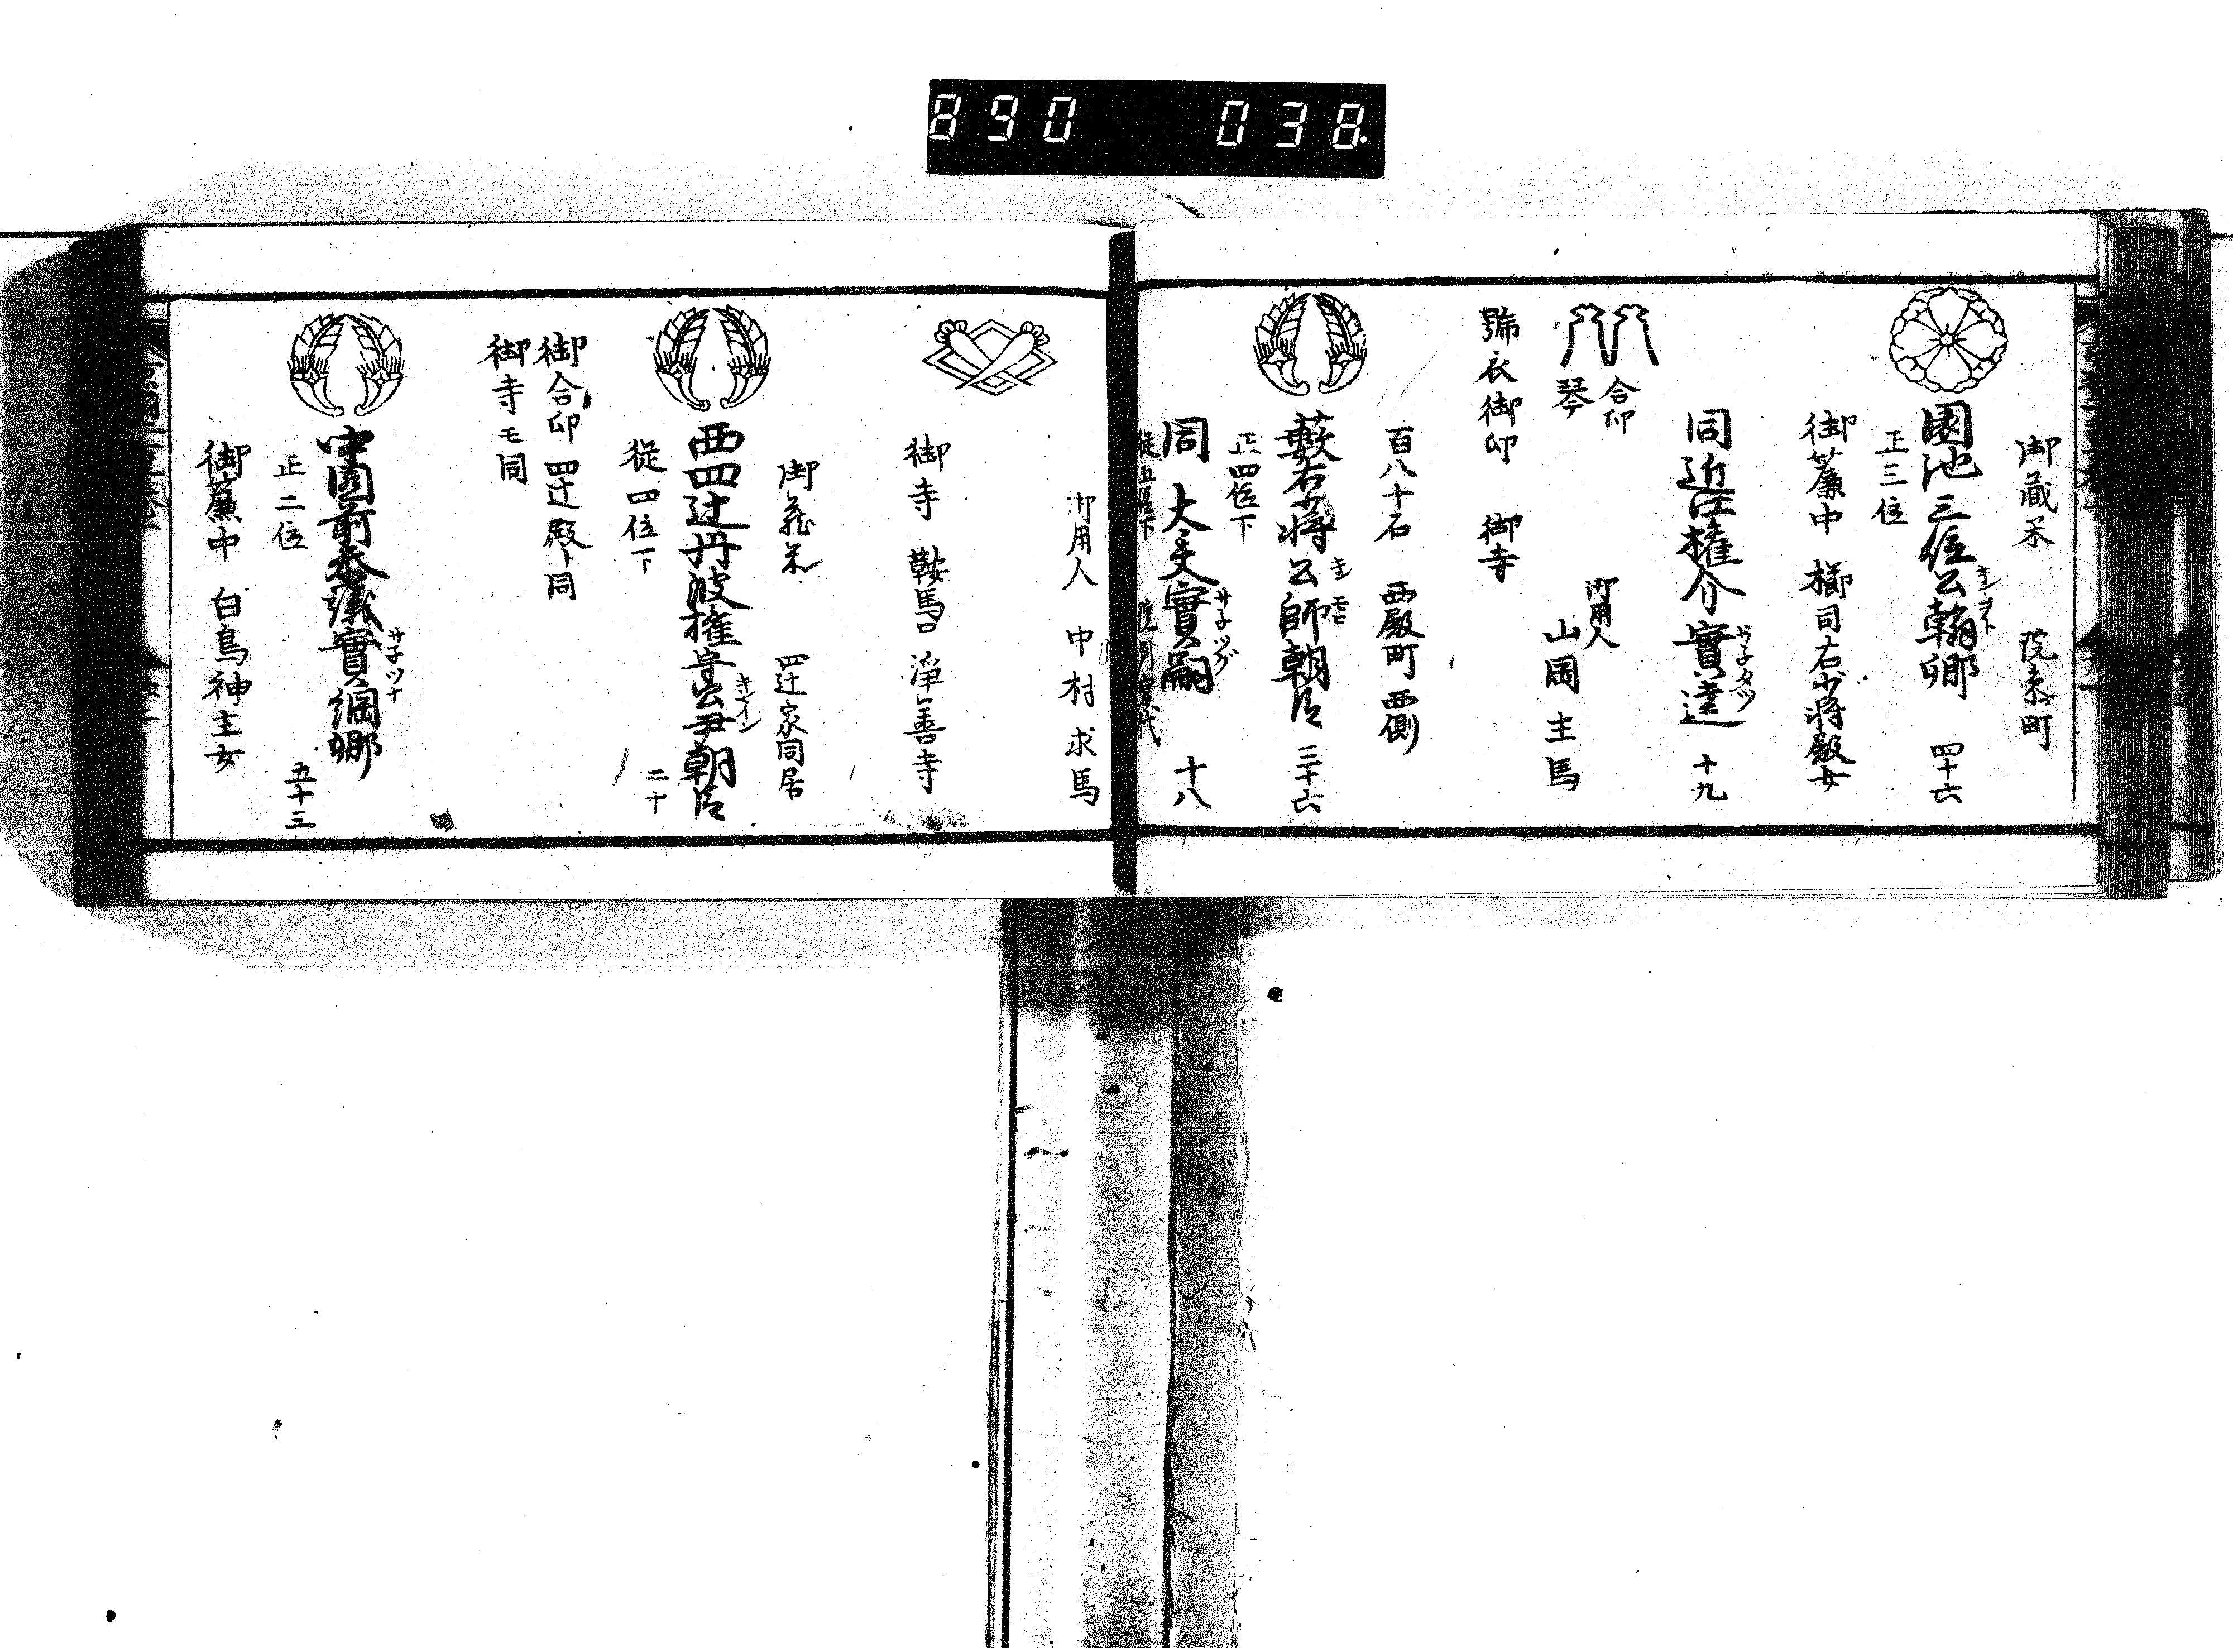 890 038
御蔵米 院参町
園池三位公翰卿 四十六
キンフト
正三位
御簾中 櫛司右少将殿女
同近江権介實達 十九
サネタツ
御用人
山岡主馬
合印
琴
號衣御印 御寺
百八十石 西殿町西側
藪右少将公師朝臣 三十六
キン モロ
正四位下
同大夫實嗣 十八
サネツグ
從五位下
御用人 中村求馬
御寺 鞍馬口 淨善寺
御蔵米 四辻家同居
西四辻丹波権守公尹朝臣 二十
キンイン
從四位下
御合印 四辻殿ト同
御寺モ同
中園前参議實綱卿 五十三
サネツナ
正二位
御簾中 白鳥神主女